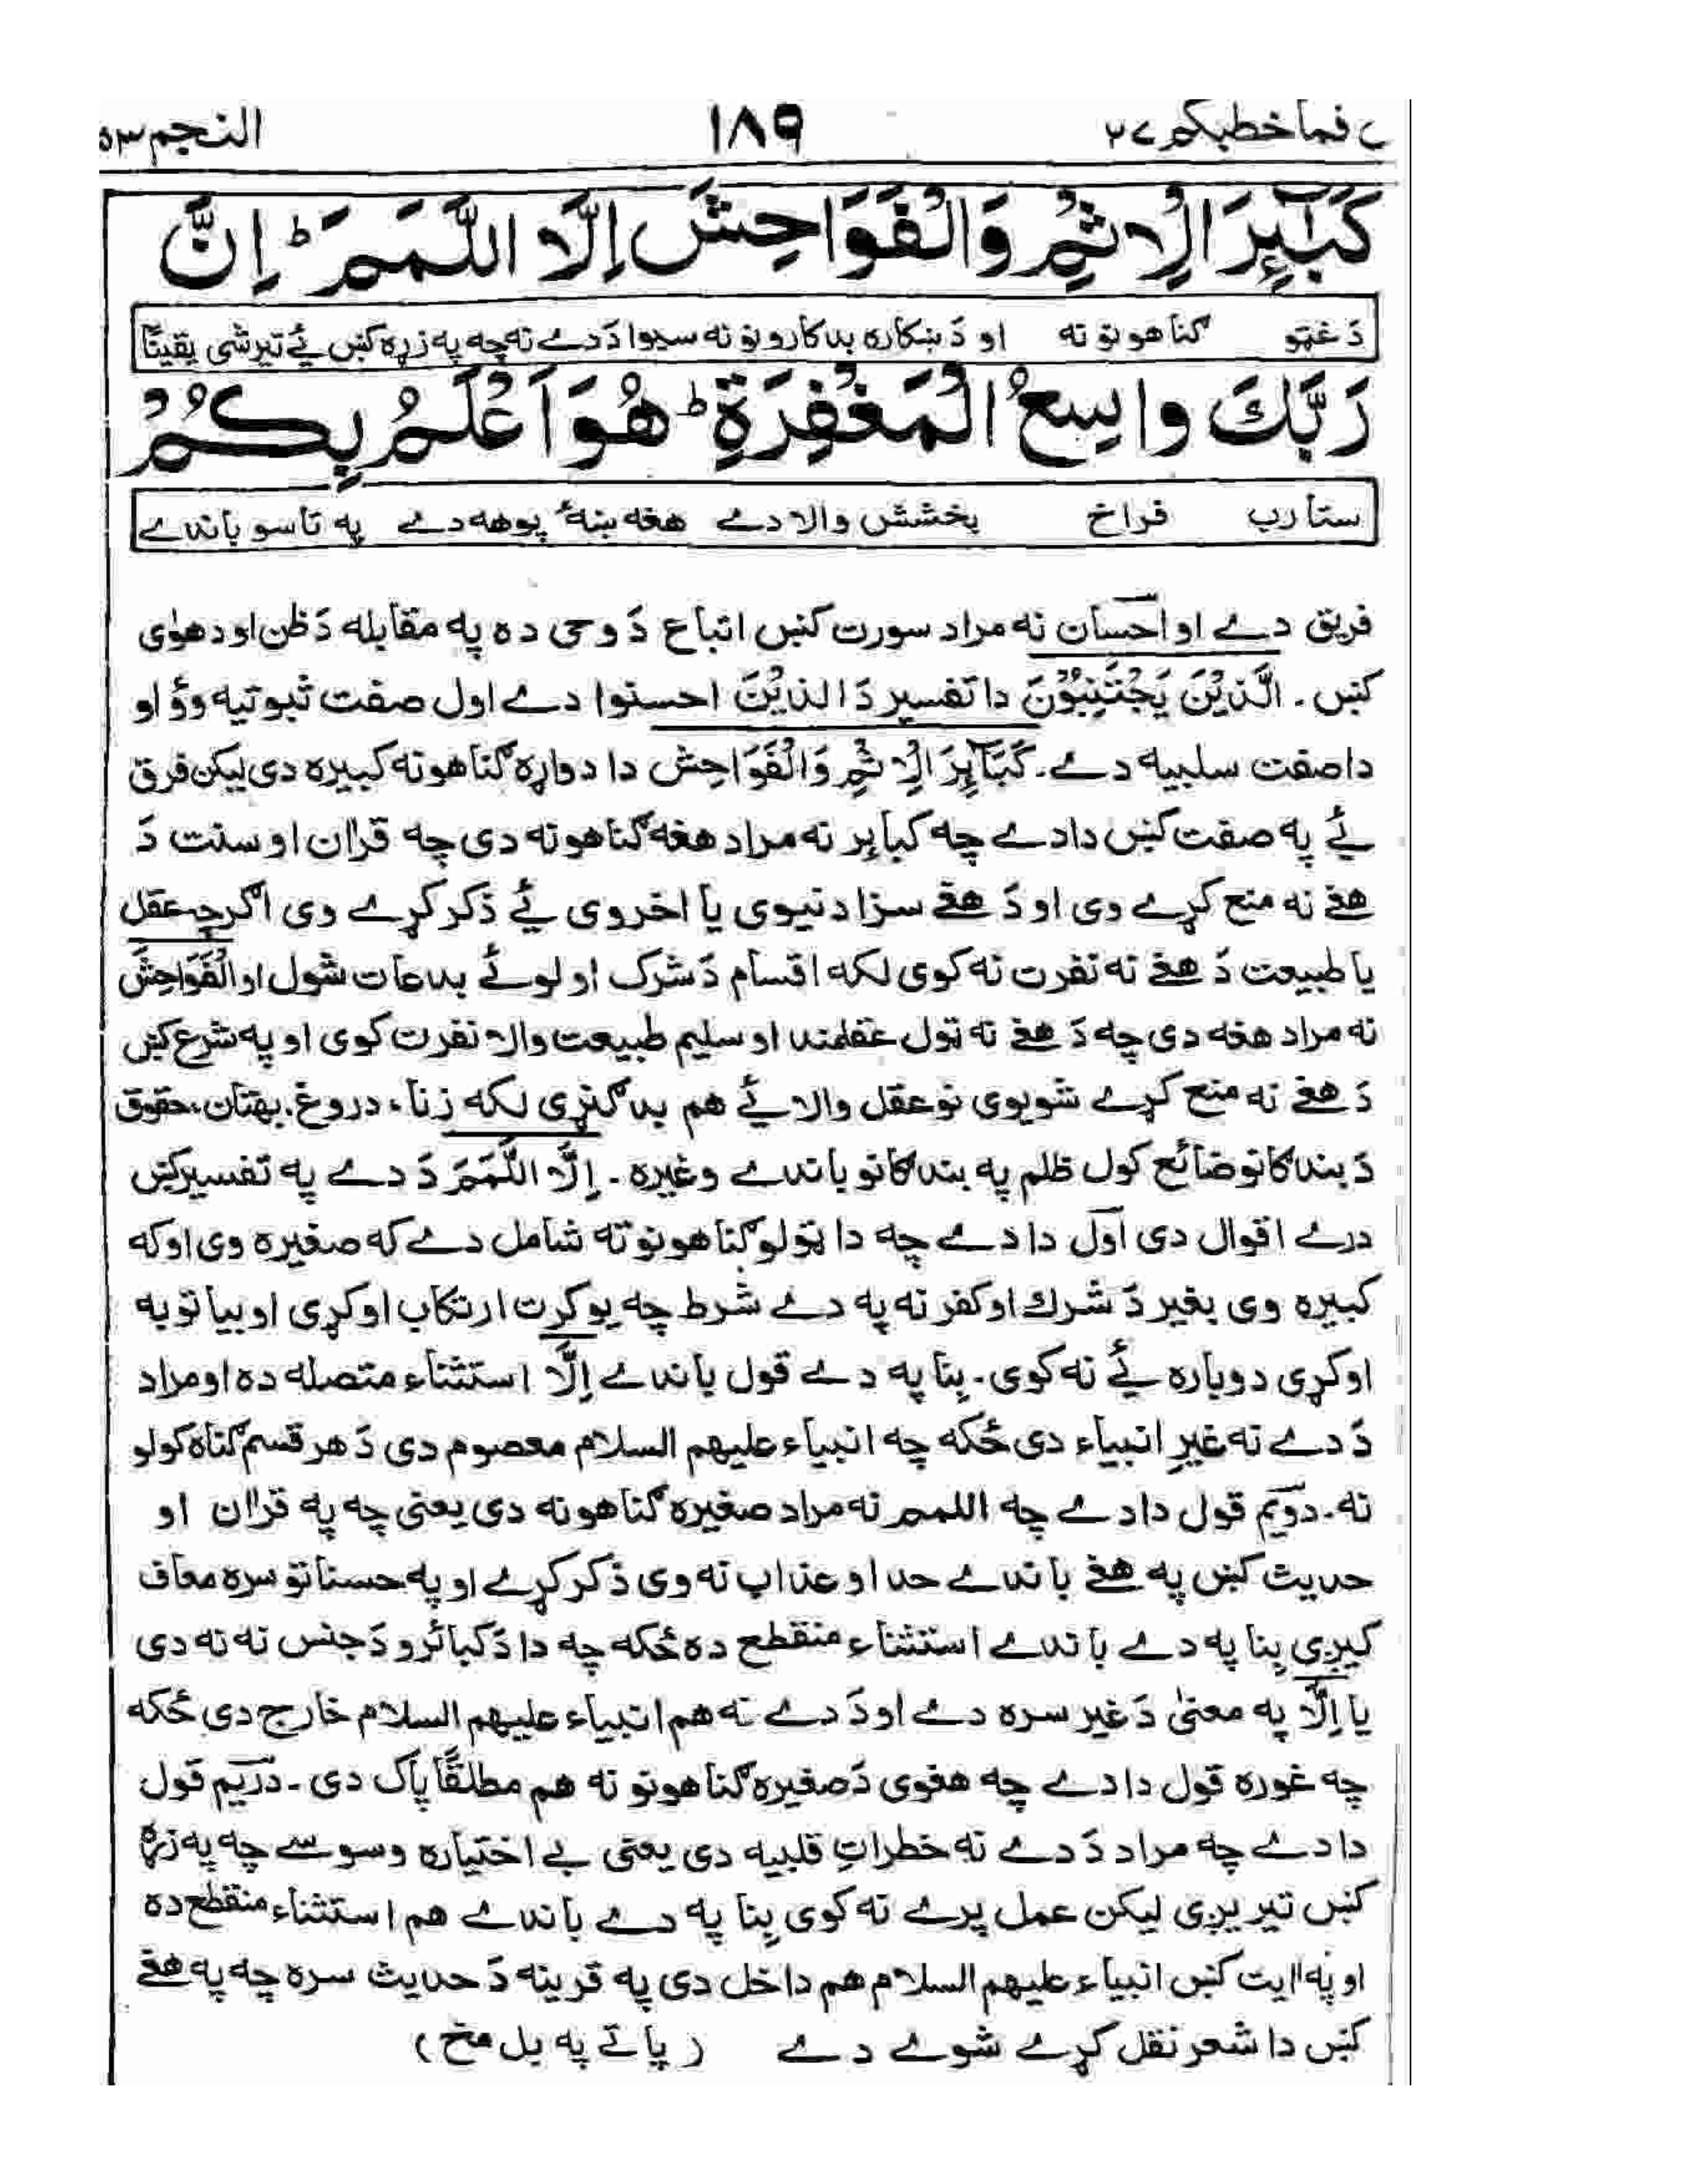 قال فما خطبكم ۲۷ ۱۸۹ النجم ۵۳
كَبٰٓئِرَ الْاِثْمِ وَالْفَوَاحِشَ اِلَّا اللَّمَمَ ؕ اِنَّ
دَ غټو ګناهونو نه او دَ ښکاره بدکارونو نه سیوا دَ دے نه چه په زړه کښ ئے تیر شی یقینًا
رَبَّكَ وَاسِعُ الْمَغْفِرَةِ ؕ هُوَ اَعْلَمُ بِكُمْ
ستا رب فراخ بخشش والا دے هغه ښهٔ پوهه دے په تاسو باندے
فریق دے او احسان نه مراد سورت کښ اتباع دَ وحی ده په مقابله دَ ظن او دهوٰی
کښ ۔ الَّذِیْنَ یَجْتَنِبُوْنَ دا تفسیر دَ الذیْنَ احسنوا دے اول صفت ثبوتیه وؤ او
دا صفت سلبیه دے۔ كَبَآئِرَ الْاِثْمِ وَالْفَوَاحِشَ دا دواړه ګناهونه کبیره دی لیکن فرق
ئے په صفت کښ دا دے چه کبائر نه مراد هغه ګناهونه دی چه قراٰن او سنت دَ
هغے نه منع کړے وی او دَ هغے سزا دنیوی یا اخروی ئے ذکر کړے وی اګرچه عقل
یا طبیعت دَ هغے نه نفرت نه کوی لکه اقسام دَ شرک او لوئے بدعات شول او الْفَوَاحِشَ
نه مراد هغه دی چه دَ هغے نه ټول عقلمند او سلیم طبیعت والا نفرت کوی او په شرع کښ
دَ هغے نه منع کړے شویوی نو عقل والا ئے هم بد ګنړی لکه زنا، دروغ، بهتان، حقوق
دَ بندګانو ضائع کول ظلم په بندګانو باندے وغیره ۔ اِلَّا اللَّمَمَ دَ دے په تفسیر کښ
درے اقوال دی اول دا دے چه دا ټولو ګناهونو ته شامل دے که صغیره وی او که
کبیره وی بغیر دَ شرك او کفر نه په دے شرط چه یو کرت ارتکاب اوکړی او بیا توبه
اوکړی دوباره ئے نه کوی۔ بِنا په دے قول باندے اِلَّا استثناء متصله ده او مراد
دَ دے نه غیرِ انبیاء دی ځکه چه انبیاء علیهم السلام معصوم دی دَ هر قسم ګناه کولو
نه ۔ دویم قول دا دے چه اللمم نه مراد صغیره ګناهونه دی یعنی چه په قراٰن او
حدیث کښ په هغے باندے حد او عذاب نه وی ذکر کړے او په حسناتو سره معاف
کیږی بِنا په دے باندے استثناء منقطع ده ځکه چه دا دَ کبائرو دَ جنس نه نه دی
یا اِلَّا په معنیٰ دَ غیر سره دے او دَ دے نه هم انبیاء علیهم السلام خارج دی ځکه
چه غوره قول دا دے چه هغوی دَ صغیره ګناهونو نه هم مطلقًا پاک دی ۔ دریم قول
دا دے چه مراد دَ دے نه خطراتِ قلبیه دی یعنی بے اختیاره وسوسے چه په زړه
کښ تیریږی لیکن عمل پرے نه کوی بِنا په دے باندے هم استثناء منقطع ده
او په اٰیت کښ انبیاء علیهم السلام هم داخل دی په قرینه دَ حدیث سره چه په هغے
کښ دا شعر نقل کړے شوے دے (پاتے په بل مخ)